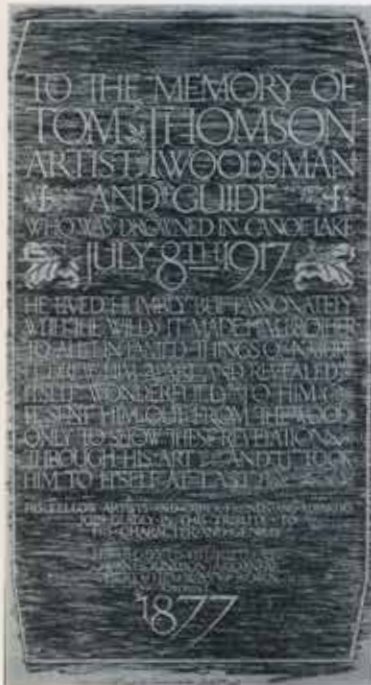 TO THE MEMORY OF
TOM THOMSON
ARTIST, WOODSMAN
AND GUIDE
WHO WAS DROWNED IN CANOE LAKE
JULY 8TH 1917
HE LIVED HUMBLY BUT PASSIONATELY
WITH THE WILD. IT MADE HIM BROTHER
TO ALL UNTAMED THINGS OF NATURE
IT DREW HIM APART AND REVEALED
ITSELF WONDERFULLY TO HIM
IT SENT HIM OUT FROM THE WOODS
ONLY TO SHOW THESE REVELATIONS
THROUGH HIS ART AND IT TOOK
HIM TO ITSELF AT LAST
HIS FELLOW ARTISTS AND OTHER FRIENDS AND ADMIRERS
JOIN GLADLY IN THIS TRIBUTE TO
HIS CHARACTER AND GENIUS
1877